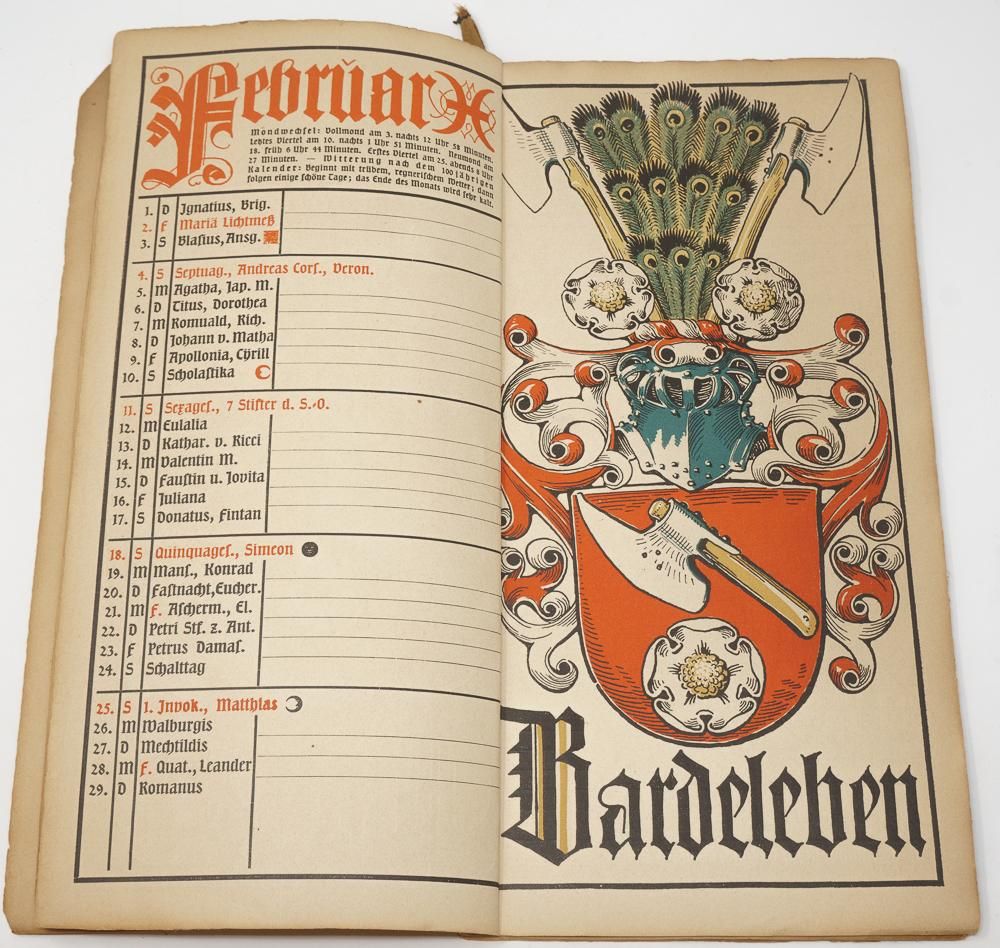 Februar
Mondwechsel: Vollmond am 3. nachts 12 Uhr 58 Minuten,
letztes Viertel am 10. nachts 1 Uhr 51 Minuten. Neumond am
18. früh 6 Uhr 44 Minuten. Erstes Viertel am 25. abends 8 Uhr
27 Minuten. — Witterung nach dem 100jährigen
Kalender: Beginnt mit trübem, regnerischem Wetter; dann
folgen einige schöne Tage; das Ende des Monats wird sehr kalt.
1. D Ignatius, Brig.
2. F Mariä Lichtmeß
3. S Blasius, Ansg.
4. S Septuag., Andreas Cors., Veron.
5. M Agatha, Jap. M.
6. D Titus, Dorothea
7. M Romuald, Rich.
8. D Johann v. Matha
9. F Apollonia, Cÿrill
10. S Scholastika
11. S Sexages., 7 Stifter d. S.-O.
12. M Eulalia
13. D Kathar. v. Ricci
14. M Valentin M.
15. D Faustin u. Jovita
16. F Juliana
17. S Donatus, Fintan
18. S Quinquages., Simeon
19. M Mans., Konrad
20. D Fastnacht, Eucher.
21. M F. Ascherm., El.
22. D Petri Stf. z. Ant.
23. F Petrus Damas.
24. S Schalttag
25. S 1. Invok., Matthias
26. M Walburgis
27. D Mechtildis
28. M F. Quat., Leander
29. D Romanus
Bardeleben